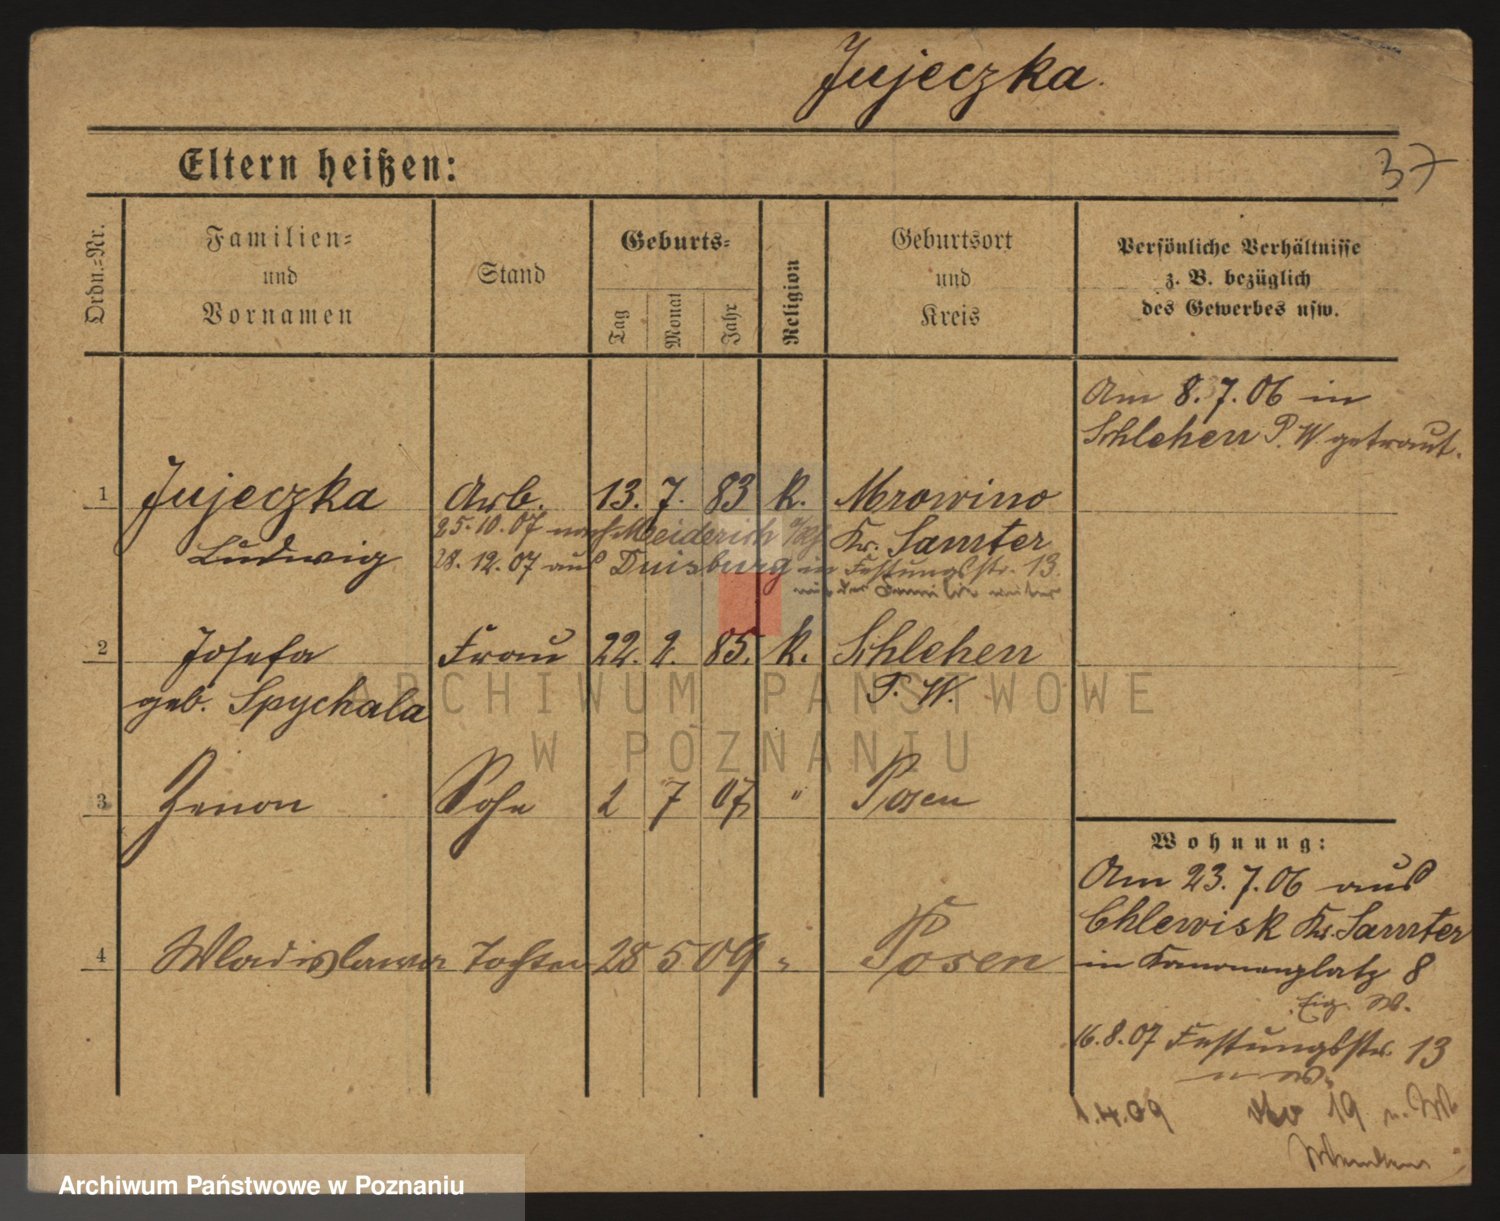 Jujeczka.
Eltern heißen:
37
Ordn.-Nr.
Familien-
und
Vornamen
Stand
Geburts-
Tag
Monat
Jahr
Religion
Geburtsort
und
Kreis
Persönliche Verhältnisse
z. B. bezüglich
des Gewerbes usw.
Am 8.7.06 in
Schlehen P. W. getraut.
1 Jujeczka Arb. 13. 7. 83 k. Mrowino
Ludwig
Kr. Samter
25.10.07 nach Meiderich
28.12.07 aus Duisburg in Festungsstr. 13
2 Josefa Frau 22. 2. 85. k. Schlehen
geb. Spychala P. W.
3 Zenon Sohn 2 7 07 " Posen
4 Wladislawa Tochter 28 5 09 " Posen
Wohnung:
Am 23.7.06 aus
Chlewisk Kr. Samter
in Kanonenplatz 8
Eig. W.
16.8.07 Festungsstr. 13
1.4.09 19
ARCHIWUM PAŃSTWOWE
W POZNANIU
Archiwum Państwowe w Poznaniu